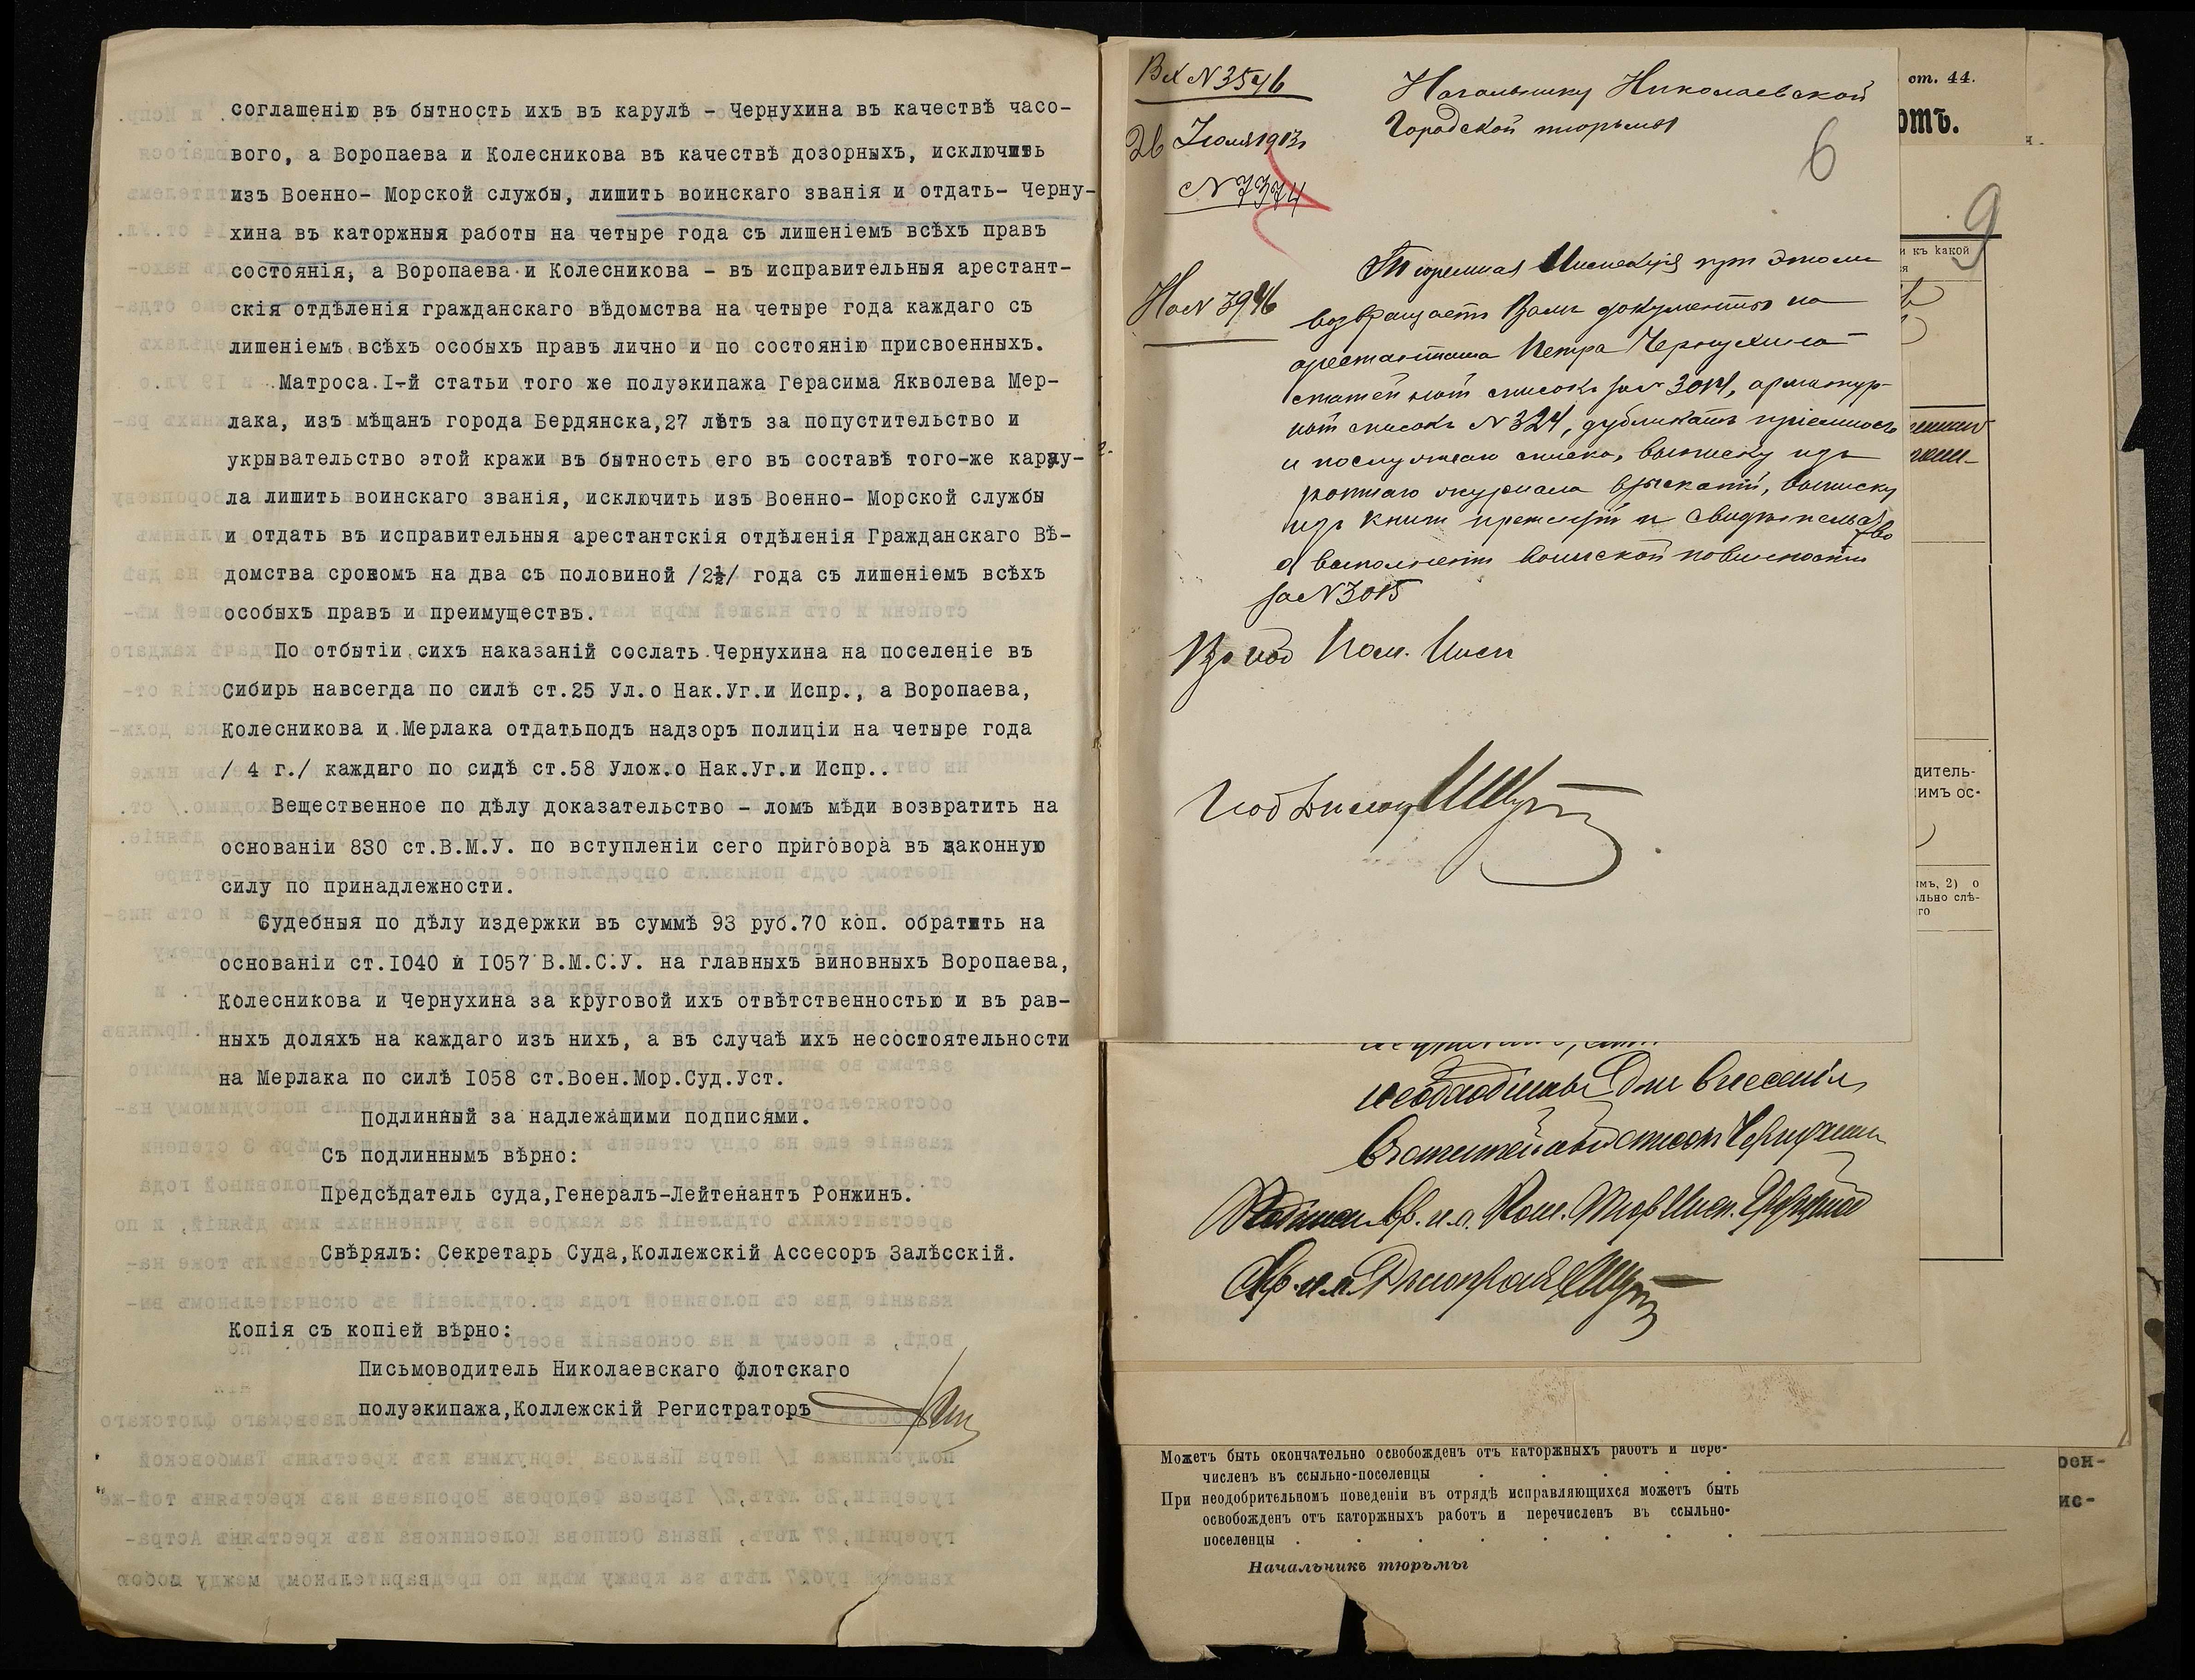 соглашенію въ бытность ихъ въ карулѣ - Чернухина въ качествѣ часо-
вого, а Воропаева и Колесникова въ качествѣ дозорныхъ, исключить
изъ Военно- Морской службы, лишить воинскаго званія и отдать- Черну-
хина въ каторжныя работы на четыре года съ лишеніемъ всѣхъ правъ
состоянія, а Воропаева и Колесникова - въ исправительныя арестант-
скія отдѣленія гражданскаго вѣдомства на четыре года каждаго съ
лишеніемъ всѣхъ особыхъ правъ лично и по состоянію присвоенныхъ.
Матроса I-й статьи того же полуэкипажа Герасима Якволева Мер-
лака, изъ мѣщанъ города Бердянска,27 лѣтъ за попустительство и
укрывательство этой кражи въ бытность его въ составѣ того-же карау-
ла лишить воинскаго званія, исключить изъ Военно- Морской службы
и отдать въ исправительныя арестантскія отдѣленія Гражданскаго Вѣ-
домства срокомъ на два съ половиной /2½/ года съ лишеніемъ всѣхъ
особыхъ правъ и преимуществъ.
По отбытіи сихъ наказаній сослать Чернухина на поселеніе въ
Сибирь навсегда по силѣ ст.25 Ул.о Нак.Уг.и Испр., а Воропаева,
Колесникова и Мерлака отдатьподъ надзоръ полиціи на четыре года
/ 4 г./ каждаго по сидѣ ст.58 Улож.о Нак.Уг.и Испр..
Вещественное по дѣлу доказательство - ломъ мѣди возвратить на
основаніи 830 ст.В.М.У. по вступленіи сего приговора въ законную
силу по принадлежности.
Судебныя по дѣлу издержки въ суммѣ 93 руб.70 коп. обратить на
основаніи ст.I040 и I057 В.М.С.У. на главныхъ виновныхъ Воропаева,
Колесникова и Чернухина за круговой ихъ отвѣтственностью и въ рав-
ныхъ доляхъ на каждаго изъ нихъ, а въ случаѣ ихъ несостоятельности
на Мерлака по силѣ I058 ст.Воен.Мор.Суд.Уст.
Подлинный за надлежащими подписями.
Съ подлиннымъ вѣрно:
Предсѣдатель суда,Генералъ-Лейтенантъ Ронжинъ.
Свѣрялъ: Секретарь Суда,Коллежскій Ассесоръ Залѣсскій.
Копія съ копіей вѣрно:
Письмоводитель Николаевскаго флотскаго
полуэкипажа,Коллежскій Регистраторъ
Вх N 3546
26 Іюля 1913
N 7374
На N 3946
Начальнику Николаевской
Городской тюрьмы
6
Тюремная Инспекція при этомъ
возвращаетъ Вамъ документы на
арестанта Петра Чернухина
статейный списокъ за N 3014, арматур-
ный списокъ N 324, дубликатъ пріемнаго
и послужнаго списка, выписку изъ
ротнаго журнала взысканій, выписку
изъ книги претензій и свидѣтельство
о выполненіи воинской повинности
за N 3015
Пом. Инсп
от. 44.
отъ.
9
и къ какой
дитель-
имъ ос-
имъ, 2) о
ально слѣ-
го
необходимы для внесенія
въ статейный списокъ Чернухина
Может​ъ быть окончательно освобожденъ отъ каторжныхъ работъ и пере-
численъ въ ссыльно-поселенцы
При неодобрительномъ поведеніи въ отрядѣ исправляющихся можетъ быть
освобожденъ отъ каторжныхъ работъ и перечисленъ въ ссыльно-
поселенцы
Начальникъ тюрьмы
рен-
ис-